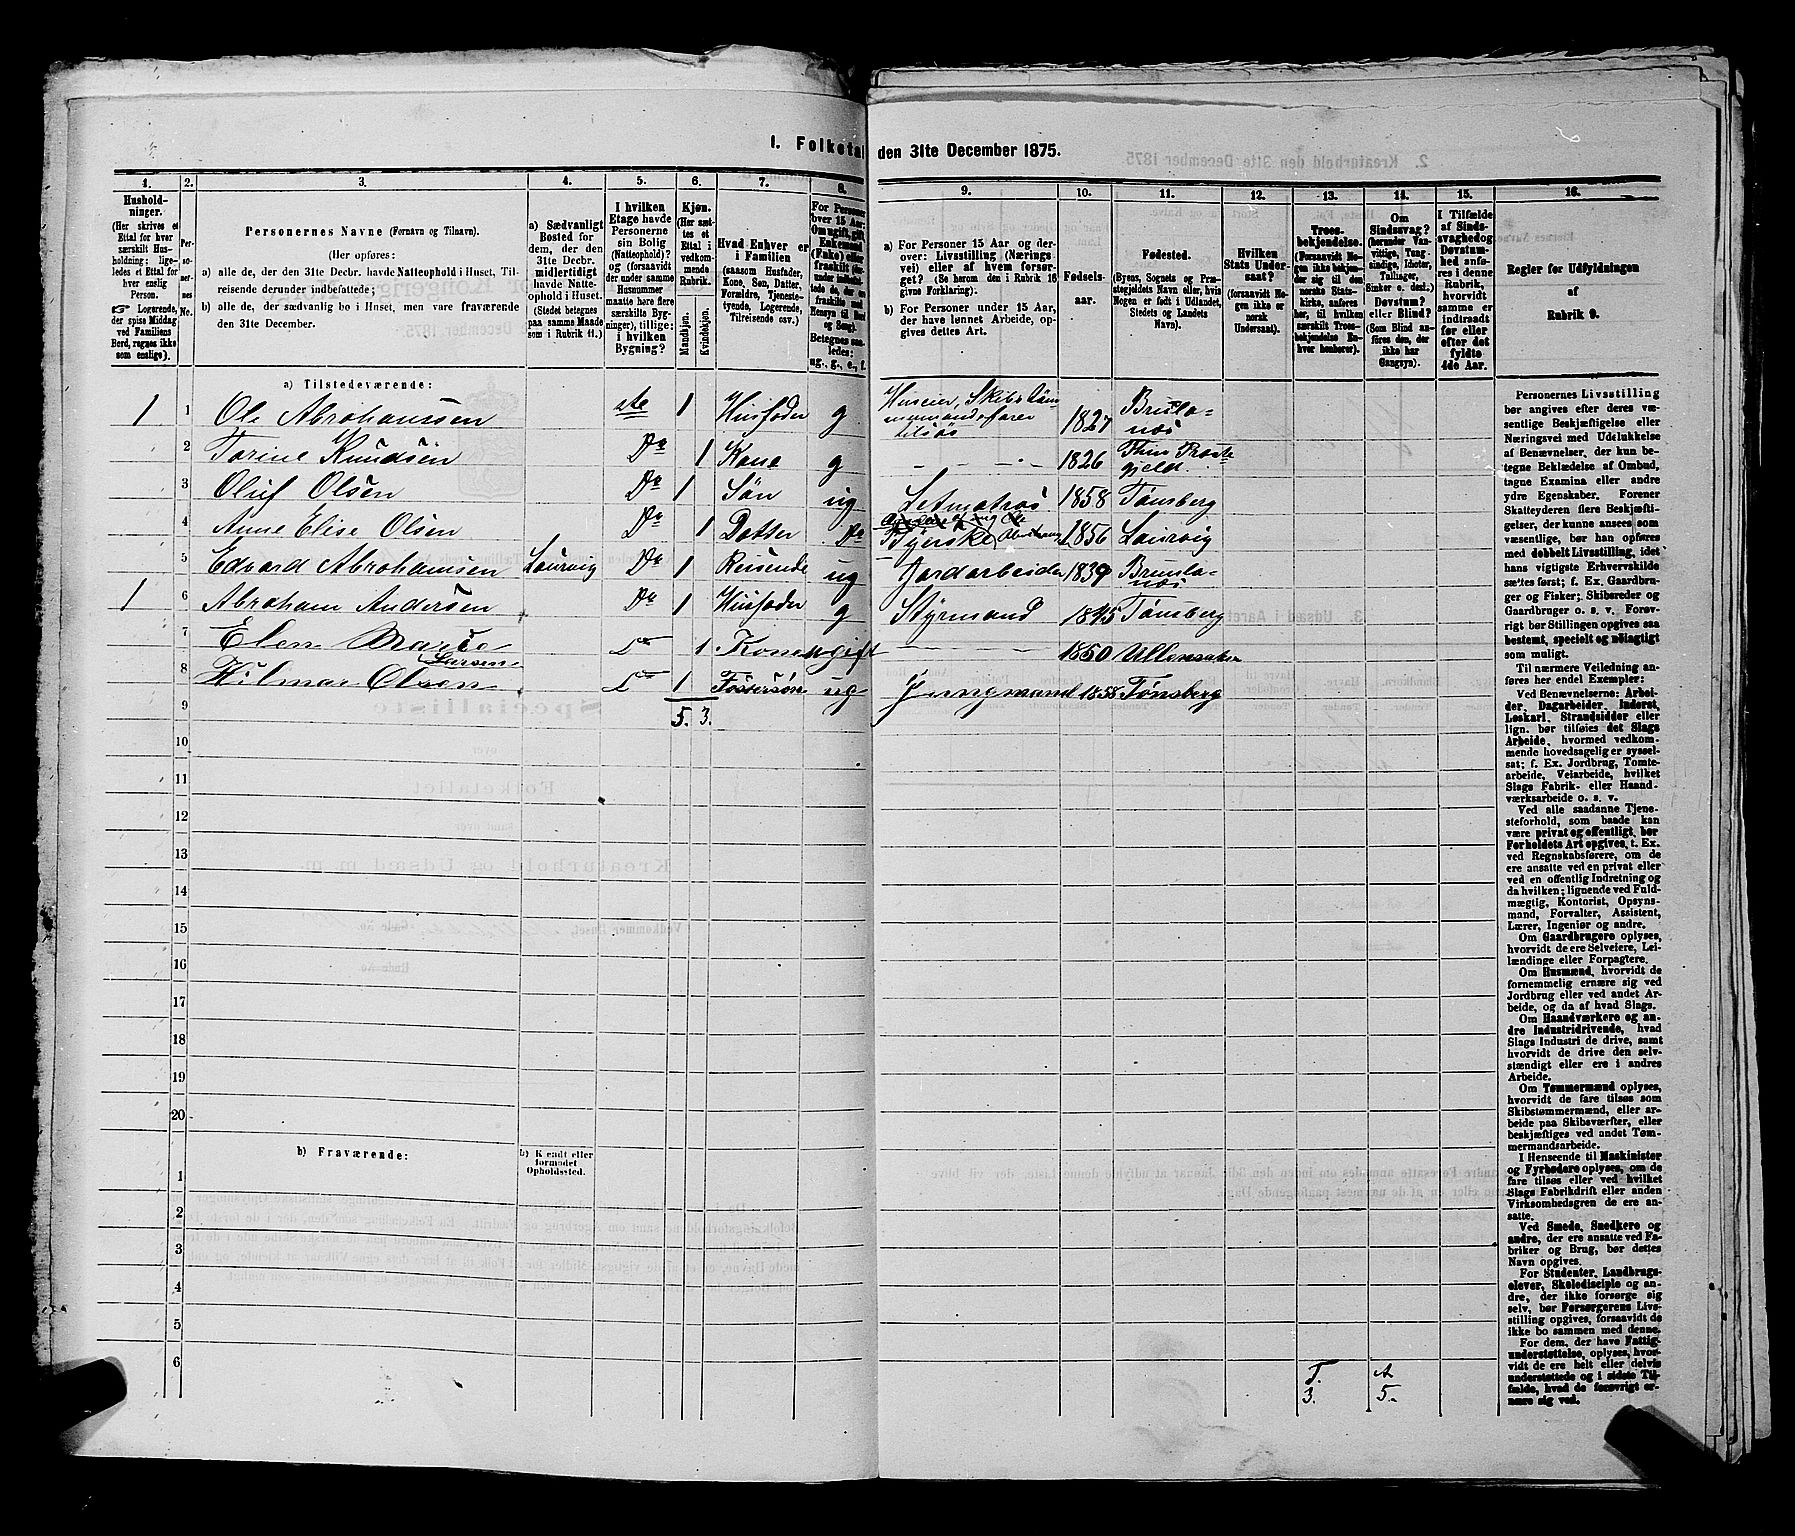 I. Folketal den 31te December 1875.
1. 2. 3. 4. 5. 6. 7. 8. 9. 10. 11. 12. 13. 14. 15. 16.
Hushold-
ninger.
(Her skrives et
Ettal for hver
særskilt Hus-
holdning; lige-
ledes et Ettal for
hver enslig
Person.
☞ Logerende,
der spise Middag
ved Familiens
Bord, regnes ikke
som enslige).
Per-
so-
ner-
nes
No.
Personernes Navne (Fornavn og Tilnavn).
(Her opføres:
a) alle de, der den 31te Decbr. havde Natteophold i Huset, Til-
reisende derunder indbefattede;
b) alle de, der sædvanlig bo i Huset, men vare fraværende
den 31te December.
a) Sædvanligt
Bosted for
dem, der den
31te Decbr.
midlertidigt
havde Natte-
ophold i Huset.
(Stedet betegnes
paa samme Maade
som i Rubrik 11.)
I hvilken
Etage havde
Personerne
sin Bolig
(Natteophold)?
og (forsaavidt
der under samme
Husnummer
maatte høre flere
særskilte Byg-
ninger), tillige:
i hvilken
Bygning?
Kjøn.
(Her sæt-
tes et
Ettal i
vedkom-
mende
Rubrik.
Mandkjøn.
Kvindekjøn.
Hvad Enhver er
i Familien
(saasom Husfader,
Kone, Søn, Datter,
Forældre, Tjeneste-
tyende, Logerende,
Tilreisende osv.)
For Personer
over 15 Aar:
Om ugift, gift,
Enkemand
(Enke) eller
fraskilt
Betegnes saa-
ledes:
ug., g., e., f.
a) For Personer 15 Aar og der-
over: Livsstilling (Nærings-
vei) eller af hvem forsør-
get? (Se herom den i Rubrik 16
givne Forklaring).
b) For Personer under 15 Aar,
der have lønnet Arbeide, op-
gives dettes Art.
Fødsels-
aar.
Fødested.
(Byens, Sognets og Præ-
stegjeldets Navn eller, hvis
Nogen er født i Udlandet,
Stedets og Landets
Navn).
Hvilken
Stats Under-
saat?
(forsaavidt No-
gen ikke er
norsk
Undersaat).
Troes-
bekjendelse.
(Forsaavidt No-
gen ikke bekjen-
der sig til den
norske Stats-
kirke, anføres
her, til hvilken
særskilt Troes-
bekjendelse En-
hver henhører).
Om
Sindssvag?
(herunder Van-
vittige, Tung-
sindige, Idioter,
Tullinger,
Sinker o. desl.)
Døvstum?
eller Blind?
(Som Blind an-
føres den, der
ikke har
Gangsyn).
I Tilfælde
af Sinds-
svaghed og
Døvstum-
hed anfø-
res i denne
Rubrik,
hvorvidt
samme er
indtraadt
før eller
efter det
fyldte
4de Aar.
Regler for Udfyldningen
af
Rubrik 9.
a) Tilstedeværende:
1 1 Ole Abrahamsen 1 Husfader g Huseier, Skibstøm-
mermand farer
tilsøs 1827 Brunla-
næs
2 Torine Knudsen Do 1 Kone g 1826
3 Oluf Olsen Do 1 Søn ug Letmatros 1858 Tønsberg
4 Anne Elise Olsen Do 1 Datter Do Syerske 1856 Laurvig
5 Edvard Abrahamsen Laurvig Do 1 Reisende ug Jordarbeider 1839 Brunla-
næs
1 6 Abraham Andersen Do 1 Husfader g Styrmand 1845 Tønsberg
7 Elen Marie
Larsen Do 1 Kone gift 1850 Ullensaker
8 Hilmar Olsen Do 1 Fostersøn ug Jungmand 1858 Tønsberg
9 5. 3.
10
11
12
13
14
15
16
17
18
19
20
b) Fraværende:
b) Kjendt eller
formodet
Opholdssted.
1
2
3
4
5
6
T. A
3. 5.
Personernes Livsstilling
bør angives efter deres væ-
sentlige Beskjæftigelse eller
Næringsvei med Udelukkelse
af Benævnelser, der kun be-
tegne Beklædelse af Ombud,
tagne Examina eller andre
ydre Egenskaber. Forener
Skatteyderen flere Beskjæfti-
gelser, der kunne ansees som
væsentlige, bør han opføres
med dobbelt Livsstilling, idet
hans vigtigste Erhvervskilde
sættes først; f. Ex. Gaardbru-
ger og Fisker; Skibsreder og
Gaardbruger o. s. v. Forøv-
rigt bør Stillingen opgives saa
bestemt, specielt og nøiagtigt
som muligt.
Til nærmere Veiledning an-
føres her endel Exempler:
Ved Benævnelserne: Arbei-
der, Dagarbeider, Inderst,
Løskarl, Strandsidder eller
lign. bør tilføies det Slags
Arbeide, hvormed vedkom-
mende hovedsagelig er syssel-
sat; f. Ex. Jordbrug, Tomte-
arbeide, Veiarbeide, hvilket
Slags Fabrik- eller Haand-
værksarbeide o. s. v.
Ved alle saadanne Tjene-
steforhold, som baade kan
være privat og offentligt, bør
Forholdets Art opgives, t. Ex.
ved Regnskabsførere, om de
ere ansatte ved en privat eller
ved en offentlig Indretning og
da hvilken; lignende ved Fuld-
mægtig, Kontorist, Opsyns-
mand, Forvalter, Assistent,
Lærer, Ingeniør og andre.
Om Gaardbrugere oplyses,
hvorvidt de ere Selveiere, Lei-
lændinge eller Forpagtere.
Om Husmænd, hvorvidt de
fornemmelig ernære sig ved
Jordbrug eller ved andet Ar-
beide, og da af hvad Slags.
Om Haandværkere og an-
dre Industridrivende, hvad
Slags Industri de drive, samt
hvorvidt de drive den selv-
stændigt eller ere i andres
Arbeide.
Om Tømmermænd oplyses,
hvorvidt de fare tilsøs som
Skibstømmermænd, eller ar-
beide paa Skibsværfter, eller
beskjæftiges ved andet Tøm-
mermandsarbeide.
I Henseende til Maskinister
og Fyrbødere oplyses, om de
fare tilsøs eller ved hvilket
Slags Fabrikdrift eller anden
Virksomhedsgren de ere an-
satte.
Ved Smede, Snedkere og
andre, der ere ansatte ved Fa-
briker og Brug, bør dettes
Navn opgives.
For Studenter, Landbrugs-
elever, Skoledisciple og an-
dre, der ikke forsørge sig
selv, bør Forsørgerens Livs-
stilling opgives, forsaavidt de
ikke bo sammen med denne.
For dem, der have Fattig-
understøttelse, oplyses, hvor-
vidt de ere helt eller delvis
understøttede og i sidste Til-
fælde, hvad de forøvrigt er-
nære sig ved.